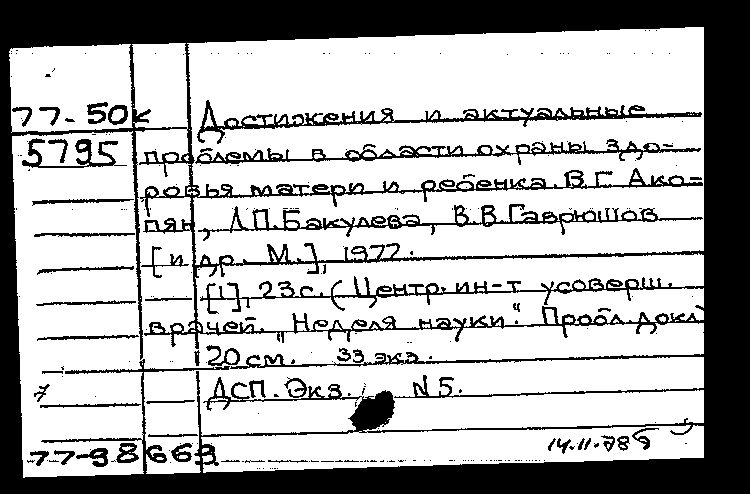 77-50к Достижения и актуальные
5795 проблемы в области охраны здо-
ровья матери и ребенка. В.Г. Ако-
пян, Л.П. Бакулева, В.В. Гаврюшов
[и др. М.], 1977.
[1], 23 с. (Центр. ин-т усоверш.
врачей. "Неделя науки". Пробл. докл.)
20 см. 33 экз.
7 ДСП. Экз. N 5.
77-98663 14.11.78